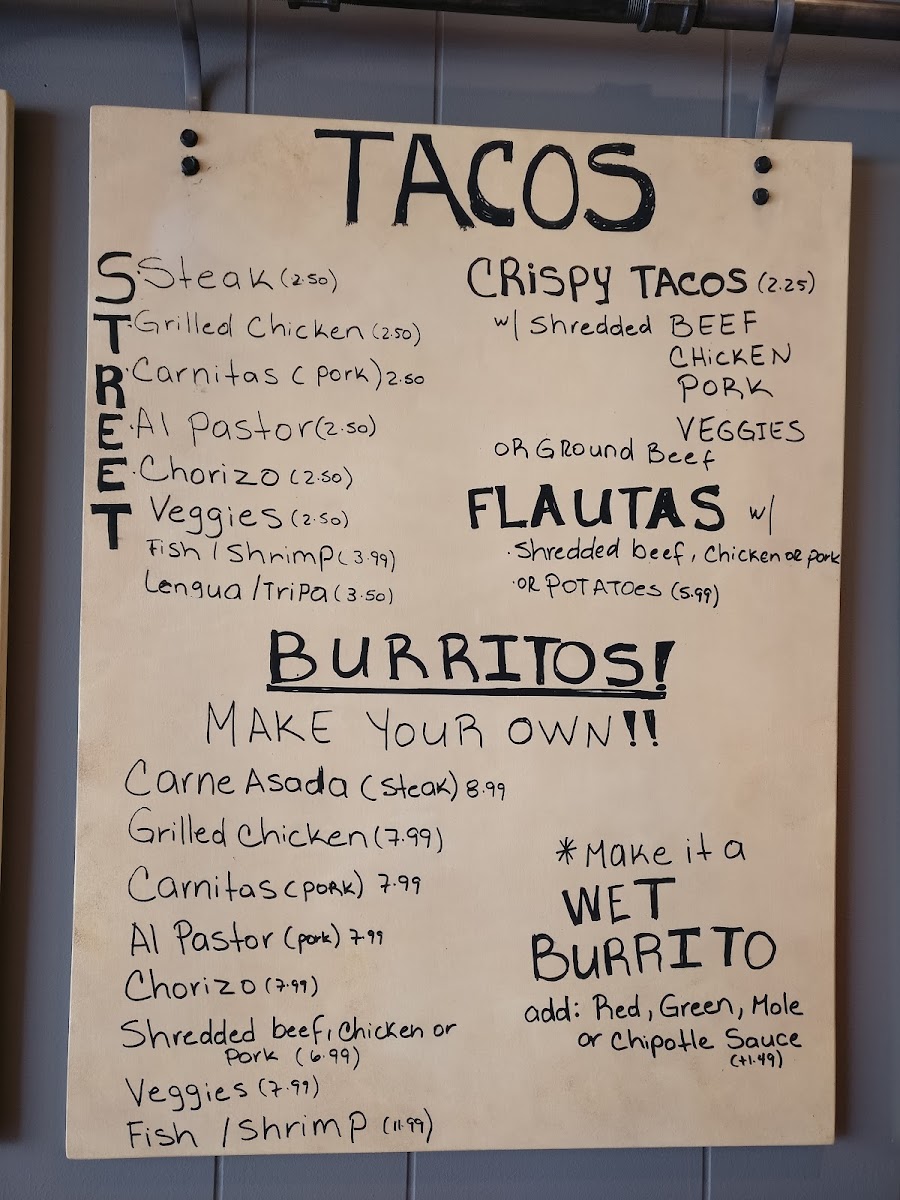 TACOS
STREET
· Steak (2.50)
· Grilled Chicken (2.50)
· Carnitas (pork) 2.50
· Al Pastor (2.50)
· Chorizo (2.50)
Veggies (2.50)
Fish / Shrimp (3.99)
Lengua / Tripa (3.50)
CRiSPY TACOS (2.25)
w/ Shredded BEEF
CHiCKEN
PORK
VEGGIES
OR GRound Beef
FLAUTAS w/
· Shredded beef, Chicken or pork
· OR POTATOes (5.99)
BURRITOS!
MAKE YOUR OWN!!
Carne Asada (Steak) 8.99
Grilled Chicken (7.99)
Carnitas (PORK) 7.99
Al Pastor (pork) 7.99
Chorizo (7.99)
Shredded beef, Chicken or
Pork (6.99)
Veggies (7.99)
Fish / Shrimp (11.99)
*Make it a
WET
BURRITO
add: Red, Green, Mole
or Chipotle Sauce
(+1.49)